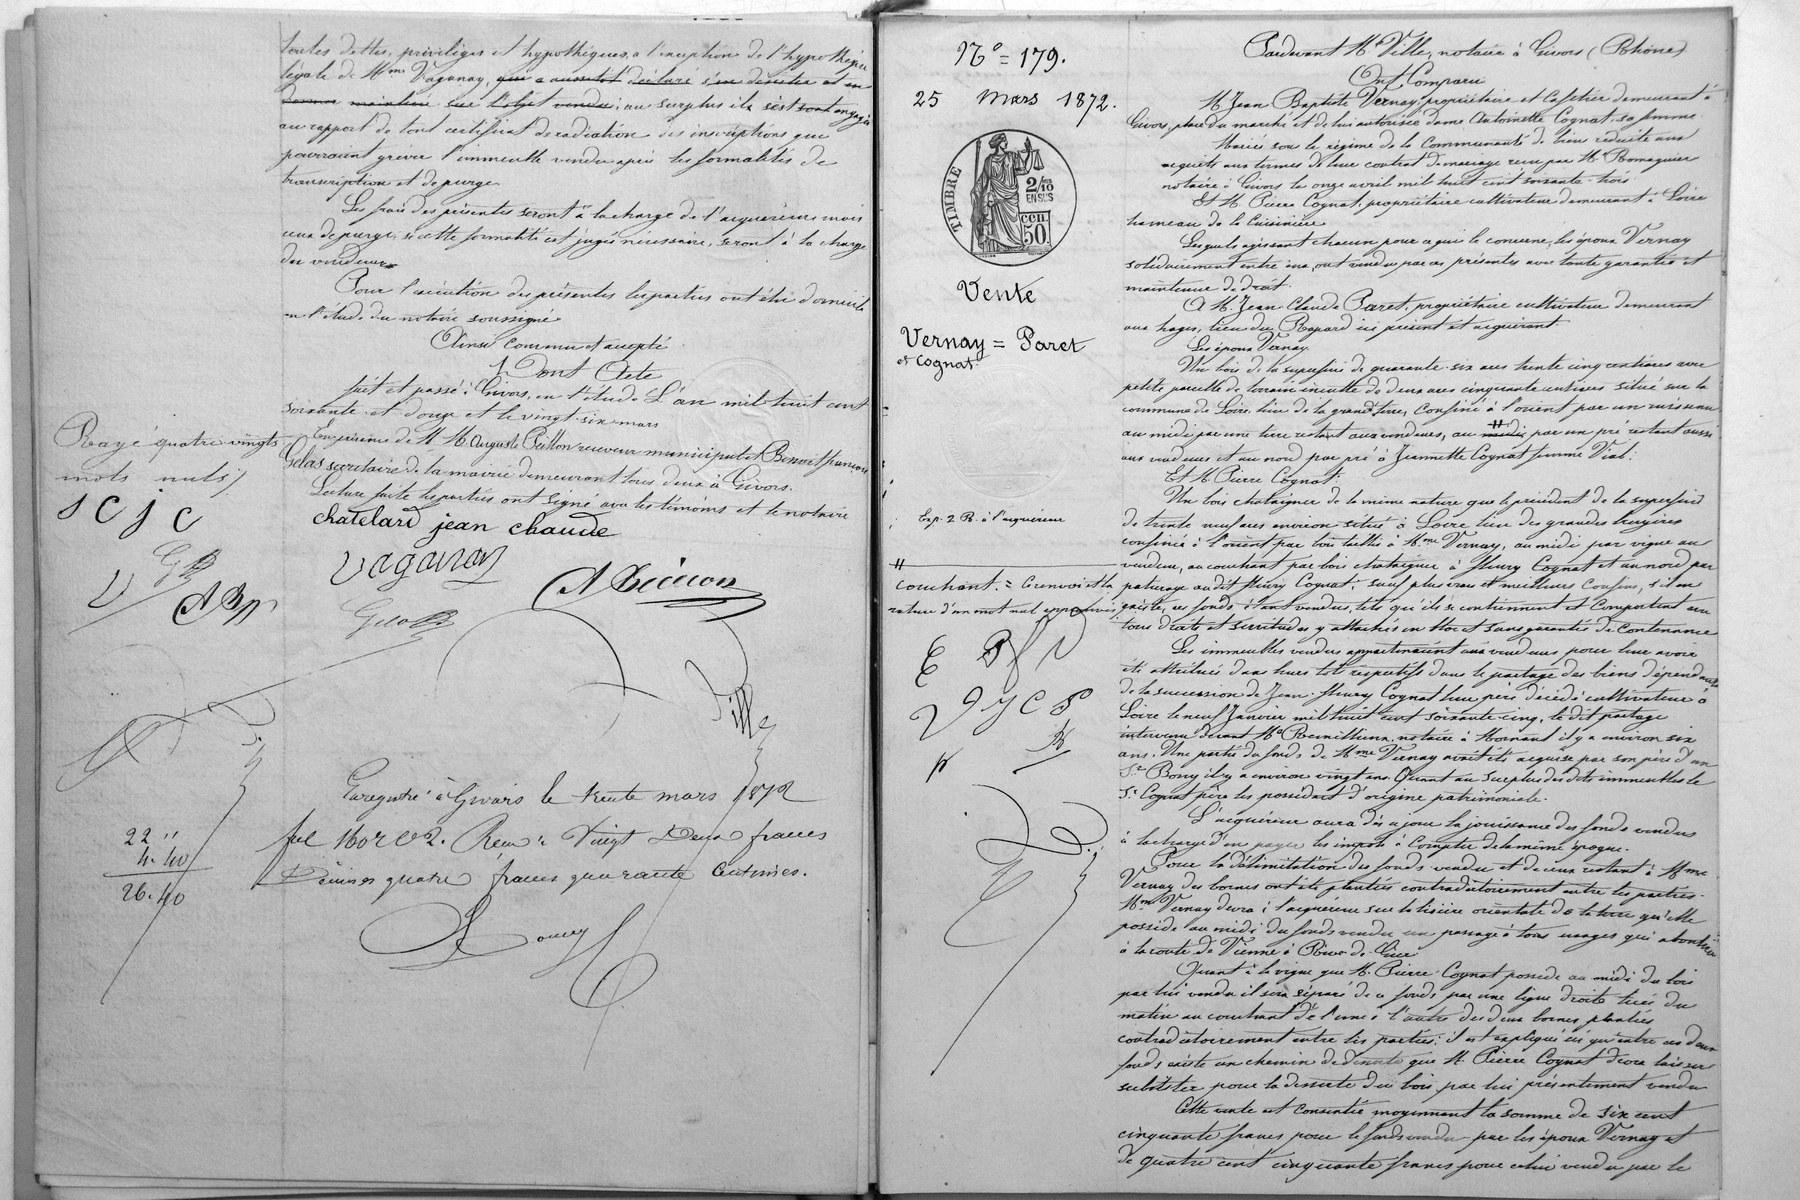 toutes dettes, privilèges et hypothèques, à l'exception de l'hypothèque
légale de Mme Vaganay, qui a aussitôt déclaré s'en désister et en
donner mainlevée sur l'objet vendu; au surplus ils s'est sont engagés
au rapport de tout certificat de radiation des inscriptions qui
pourraient grever l'immeuble vendu après les formalités de
transcription et de purge
Les frais des présentes seront à la charge de l'acquéreur mais
ceux de purge, si cette formalité est jugée nécessaire, seront à la charge
du vendeur
Pour l'exécution des présentes les parties ont élu domicile
en l'étude du notaire soussigné
Ainsi convenu et accepté
Dont Acte
fait et passé à Givors, en l'étude L'an mil huit cent
soixante et douze et le vingt-six mars
En présence de M. M. Auguste receveur municipal et Benoit François
Gelas secrétaire de la mairie demeurant tous deux à Givors.
Lecture faite les parties ont signé avec les témoins et le notaire
Rayé quatre vingts
mots nuls
chatelard jean chaude
J C J C
vaganay
Gelas
Ville
Enregistré à Givors le trente mars 1872
fol 160 r c 2. Reçu : Vingt Deux francs
Décimes quatre francs quarante Centimes.
22 "
4.40
26.40
N° = 179.
25 Mars 1872.
TIMBRE
2/10
EN SUS
CEN
50
Vente
Vernay = Paret
et Cognat
Exp. 2 R. à l'acquéreur
couchant = Ce renvoi et la
rature d'un mot nul approuvés
Pardevant Me Ville, notaire à Givors (Rhône)
Ont Comparu
M. Jean Baptiste Vernay, propriétaire et Cafetier demeurant à
Givors, place du marché et de lui autorisée dame Antoinette Cognat, sa femme
Mariés sous le régime de la Communauté de bien réduite aux
acquets aux termes de leur contrat de mariage reçu par Me Romagnier
notaire à Givors le onze avril mil huit cent soixante-trois
Et M. Pierre Cognat, propriétaire cultivateur demeurant à Loire
hameau de la Cuisinière
Lesquels agissant chacun pour ce qui le concerne, les époux Vernay
solidairement entre eux, ont vendu par ces présentes avec toute garantie et
maintenue de droit
A M. Jean Claude Paret, propriétaire cultivateur demeurant
aux hayes, lieu du Rapard ici présent et acquérant
Les époux Vernay
Un bois de la superficie de quarante-six ares trente cinq centiares avec
petite parcelle de terrain inculte de deux ares cinquante centiares situé sur la
commune de Loire, lieu de la grand terre, Confiné à l'orient par un ruisseau
au midi par une terre restant aux vendeurs, au midi par un pré restant aussi
aux vendeurs et au nord par pré à Jeannette Cognat femme Vial:
Et M. Pierre Cognat:
Un bois chataigner de la même nature que le précédent de la superficie
de trente neuf ares environ situé à Loire lieu des grandes bruyères
confiné à l'orient par bois taillis à Mme Vernay, au midi par vigne au
vendeur, au couchant par bois chataigner à fleury Cognat et au nord par
paturage audit fleury Cognat; sauf plus vrais et meilleurs Confins, s'il en
existe, ces fonds étant vendus tels qu'ils se contiennent et Comportent avec
tous droits et servitudes y attachés en bloc et sans garantie de contenance
Les immeubles vendus appartiennent aux vendeurs pour leur avoir
été attribués dans leurs lots respectifs dans le partage des biens dépendants
de la succession de Jean-fleury Cognat leur père décédé cultivateur à
Loire le neuf Janvier mil huit cent soixante-cinq, le dit partage
intervenu devant Me Remillieux, notaire à Mornant il y a environ six
ans. Une partie du fonds de Mme Vernay avait été acquise par son père d'un
Sr Bony il y a environ vingt ans. Quant au surplus des dits immeubles le
Sr Cognat père les possédait d'origine patrimoniale.
L'acquéreur aura dès ce jour la jouissance des fonds vendus
à la charge d'en payer les impôts à Compter de la même époque.
Pour la délimitation des fonds vendu et de ceux restant à Mme
Vernay des bornes ont été plantées contradictoirement entre les parties.
Mme Vernay devra à l'acquéreur sur la lisière orientale de la terre qu'elle
possède au midi du fonds vendu un passage à tous usages qui aboutira
à la route de Vienne à Rive de Gier
Quant à la vigne que M. Pierre Cognat possède au midi du bois
par lui vendu il sera séparé de ce fonds par une ligne droite tirée du
matin au couchant de l'une à l'autre des deux bornes plantées
contradictoirement entre les parties: il est expliqué ici qu'entre ces deux
fonds existe un chemin de desserte que M. Pierre Cognat devra laisser
subsister pour la desserte du bois par lui présentement vendu
Cette vente est consentie moyennant la somme de six cent
cinquante francs pour le fonds vendu par les époux Vernay et
de quatre cent cinquante francs pour celui vendu par le